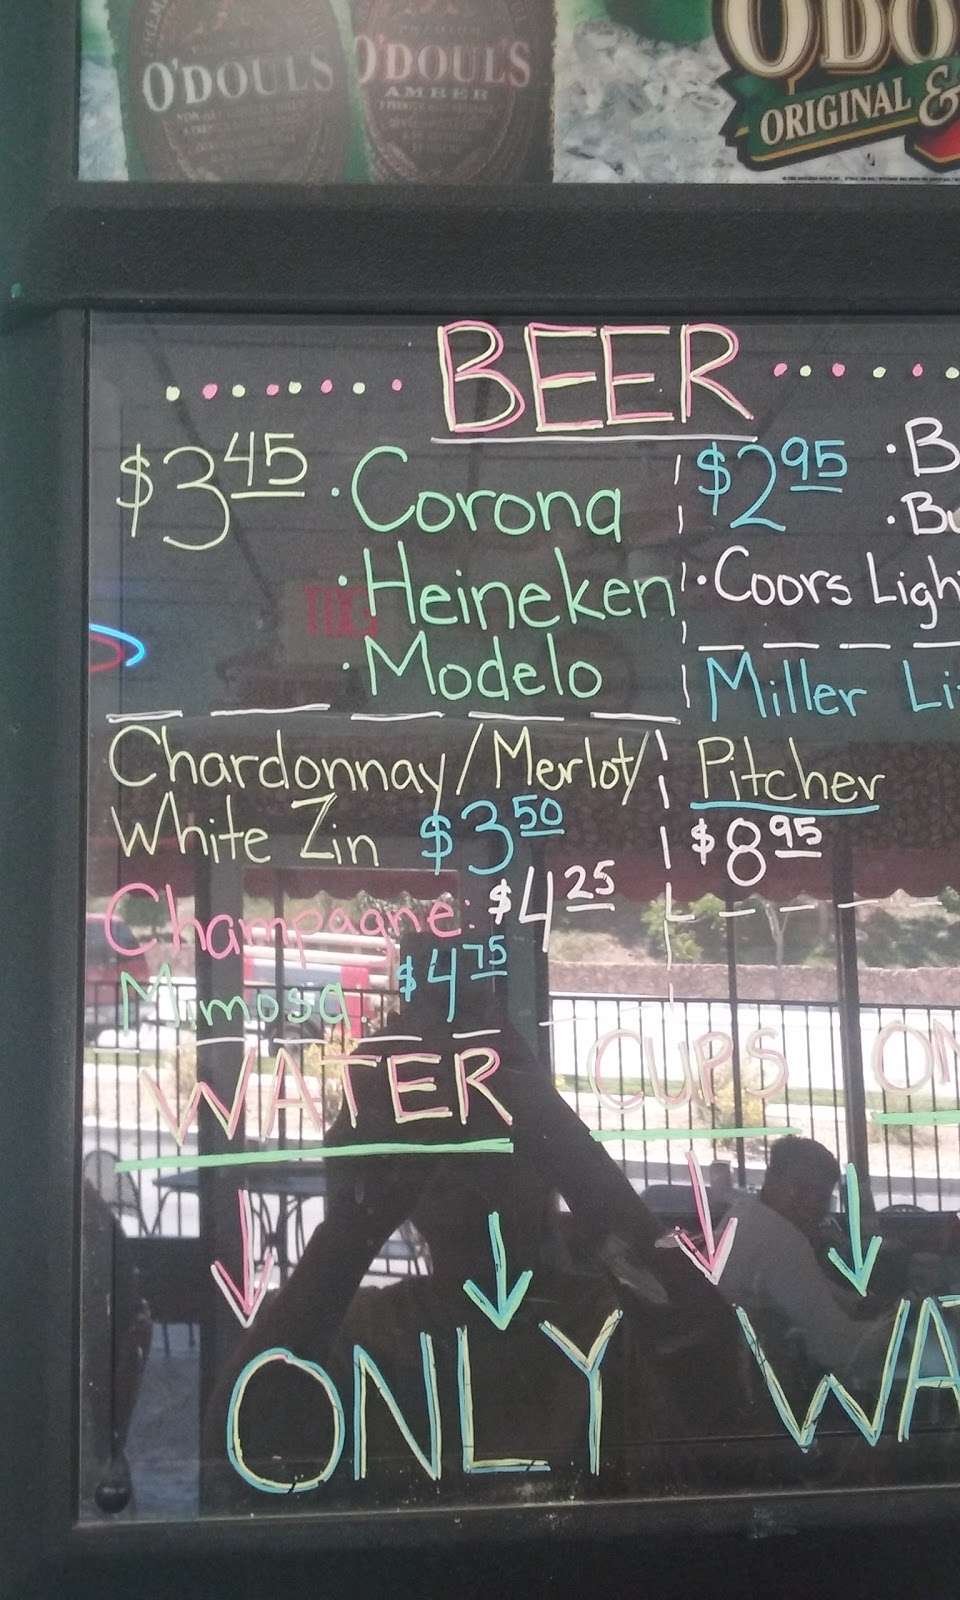 O'DOULS O'DOUL'S
AMBER
O'DO
ORIGINAL &
BEER
$3 45 · Corona
· Heineken
· Modelo
$2 95 · B
· Bu
· Coors Ligh
Miller Li
Chardonnay/Merlot/
White Zin $3 50
Champagne: $4 25
Mimosa: $4 75
Pitcher
$8 95
WATER CUPS ON
ONLY WA